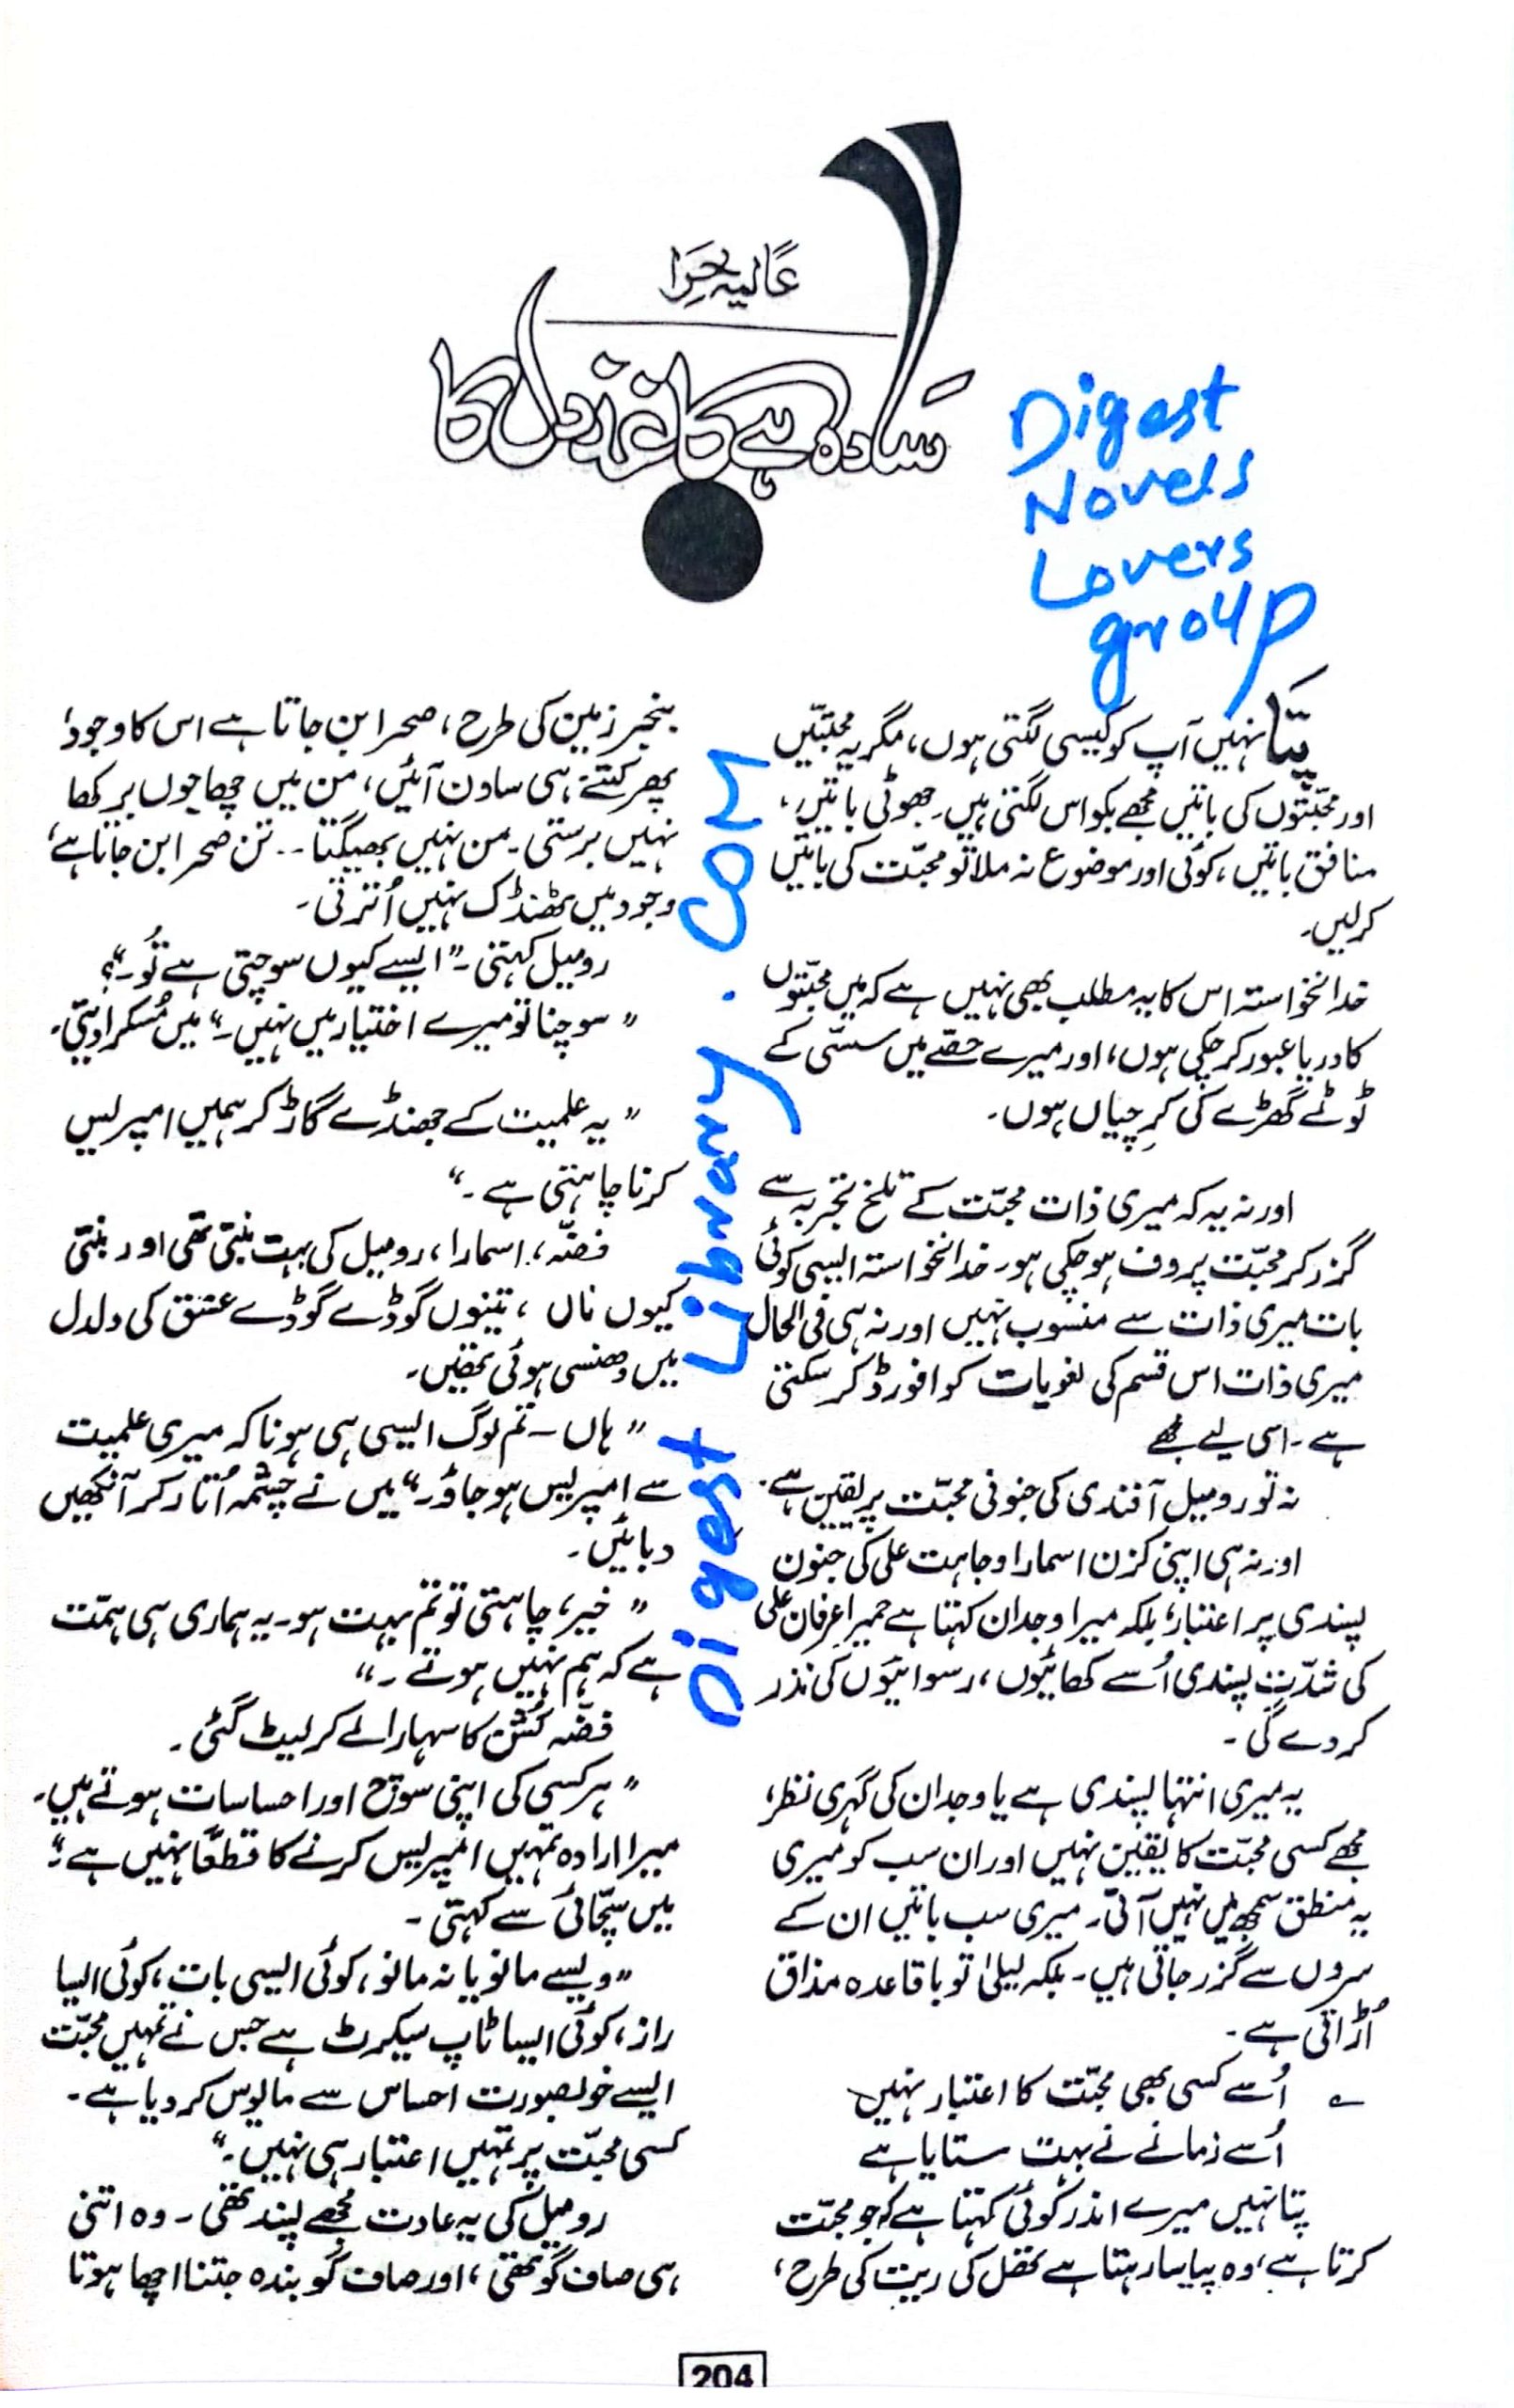 عالیہ حرا
سادہ ہے کاغذ دل کا
Digest
Novels
Lovers
group
پتا نہیں آپ کو کیسی لگتی ہوں، مگر یہ محبتیں
اور محبّتوں کی باتیں مجھے بکواس لگتی ہیں۔ جھوٹی باتیں،
منافق باتیں، کوئی اور موضوع نہ ملا تو محبّت کی باتیں
کرلیں۔
خدانخواستہ اس کا یہ مطلب بھی نہیں ہے کہ میں محبّتوں
کا دریا عبور کر چکی ہوں، اور میرے حصّے میں سسّی کے
ٹوٹے گھڑے کی کرچیاں ہوں۔
اور نہ یہ کہ میری ذات محبّت کے تلخ تجربہ سے
گزر کر محبّت پروف ہوچکی ہو۔ خدانخواستہ ایسی کوئی
بات میری ذات سے منسوب نہیں اور نہ ہی فی الحال
میری ذات اس قسم کی لغویات کو افورڈ کر سکتی
ہے۔ اسی لیے مجھے
نہ تو رومیل آفندی کی جنونی محبّت پر یقین ہے۔
اور نہ ہی اپنی کزن اسمارا وجاہت علی کی جنون
پسندی پر اعتبار، بلکہ میرا وجدان کہتا ہے حمیرا عرفان علی
کی شدّت پسندی اُسے کھائیوں، رسوائیوں کی نذر
کر دے گی۔
یہ میری انتہا پسندی ہے یا وجدان کی گہری نظر،
مجھے کسی محبّت کا یقین نہیں اور ان سب کو میری
یہ منطق سمجھ میں نہیں آتی۔ میری سب باتیں ان کے
سروں سے گزر جاتی ہیں۔ بلکہ لیلیٰ تو باقاعدہ مذاق
اُڑاتی ہے۔
؎ اُسے کسی بھی محبّت کا اعتبار نہیں
اُسے زمانے نے بہت ستایا ہے
پتا نہیں میرے اندر کوئی کہتا ہے کہ جو محبّت
کرتا ہے، وہ پیاسا رہتا ہے تھل کی ریت کی طرح،
بنجر زمین کی طرح، صحرا بن جاتا ہے اس کا وجود،
پھر کتنے ہی ساون آئیں، من میں چھاجوں برکھا
نہیں برستی۔ من نہیں بھیگتا۔۔ تن صحرا بن جاتا ہے،
وجود میں ٹھنڈک نہیں اُترتی۔
رومیل کہتی۔ "ایسے کیوں سوچتی ہے تُو۔"؟
"سوچنا تو میرے اختیار میں نہیں۔" میں مُسکرا دیتی۔
"یہ علمیت کے جھنڈے گاڑ کر ہمیں امپریس
کرنا چاہتی ہے۔"
فضّہ، اسمارا، رومیل کی بہت بنتی تھی اور بنتی
کیوں ناں، تینوں گوڈے گوڈے عشق کی دلدل
میں دھنسی ہوئی تھیں۔
"ہاں۔ تم لوگ ایسی ہی ہو نا کہ میری علمیت
سے امپریس ہو جاؤ۔" میں نے چشمہ اُتار کر آنکھیں
دبائیں۔
"خیر، چاہتی تو تم بہت ہو۔ یہ ہماری ہی ہمّت
ہے کہ ہم نہیں ہوتے۔"
فضّہ کُشن کا سہارا لے کر لیٹ گئی۔
"ہر کسی کی اپنی سوچ اور احساسات ہوتے ہیں۔
میرا ارادہ تمہیں امپریس کرنے کا قطعًا نہیں ہے۔"
میں سچّائی سے کہتی۔
"ویسے مانو یا نہ مانو، کوئی ایسی بات، کوئی ایسا
راز، کوئی ایسا ٹاپ سیکرٹ ہے جس نے تمہیں محبّت
ایسے خوبصورت احساس سے مایوس کر دیا ہے۔
کسی محبّت پر تمہیں اعتبار ہی نہیں۔"
رومیل کی یہ عادت مجھے پسند تھی۔ وہ اتنی
ہی صاف گو تھی، اور صاف گو بندہ جتنا اچھا ہوتا
Digest Library.com
204